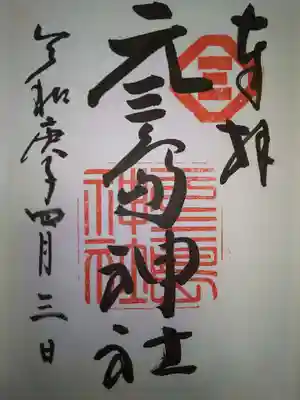 奉拝
元三島神社
令和庚子四月三日